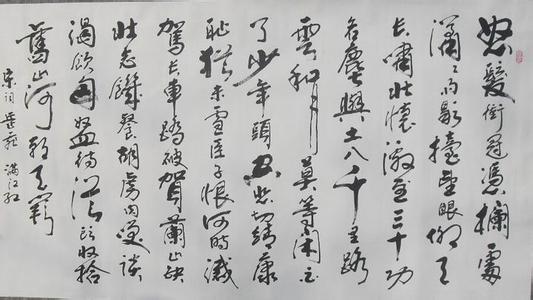 怒髮衝冠憑欄處
瀟〻雨歇擡望眼仰天
长嘯壯懷激烈三十功
名塵與土八千里路
雲和月莫等闲白
了少年頭空悲切靖康
耻猶未雪臣子恨何時滅
駕长車踏破賀蘭山缺
壯志饑餐胡虜肉笑談
渴飲匈奴血待從頭收拾
舊山河朝天闕
宋词岳飛 满江红